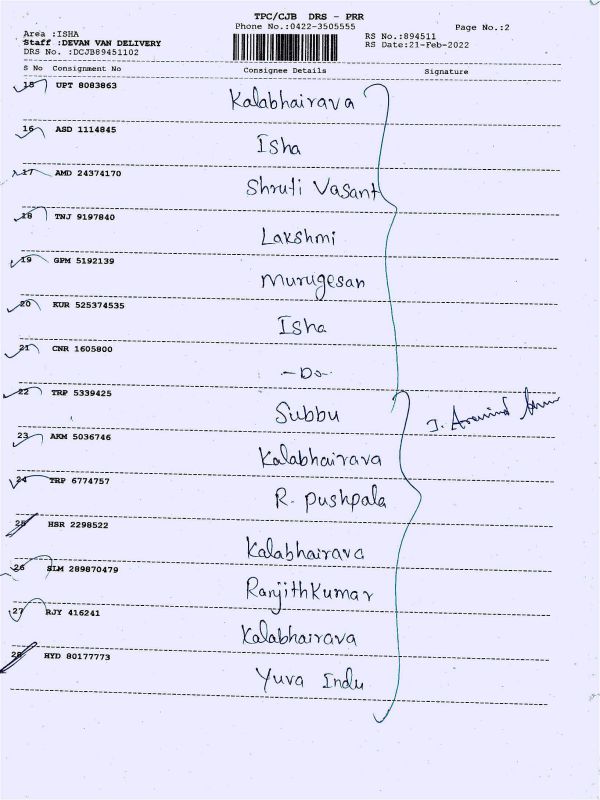 TPC/CJB DRS - PRR
Phone No.:0422-3505555 Page No.:2
Area :ISHA RS No.:894511
Staff :DEVAN VAN DELIVERY RS Date:21-Feb-2022
DRS No. :DCJB89451102
S No Consignment No Consignee Details Signature
15 UPT 8083863
Kalabhairava
16 ASD 1114845
Isha
17 AMD 24374170
Shruti Vasant
18 TNJ 9197840
Lakshmi
19 GPM 5192139
Murugesan
20 KUR 525374535
Isha
21 CNR 1605800
-Do-
22 TRP 5339425
Subbu
J. Aravind
23 AKM 5036746
Kalabhairava
24 TRP 6774757
R. Pushpala
25 HSR 2298522
Kalabhairava
26 SLM 289870479
RanjithKumar
27 RJY 416241
Kalabhairava
28 HYD 80177773
Yuva Indu